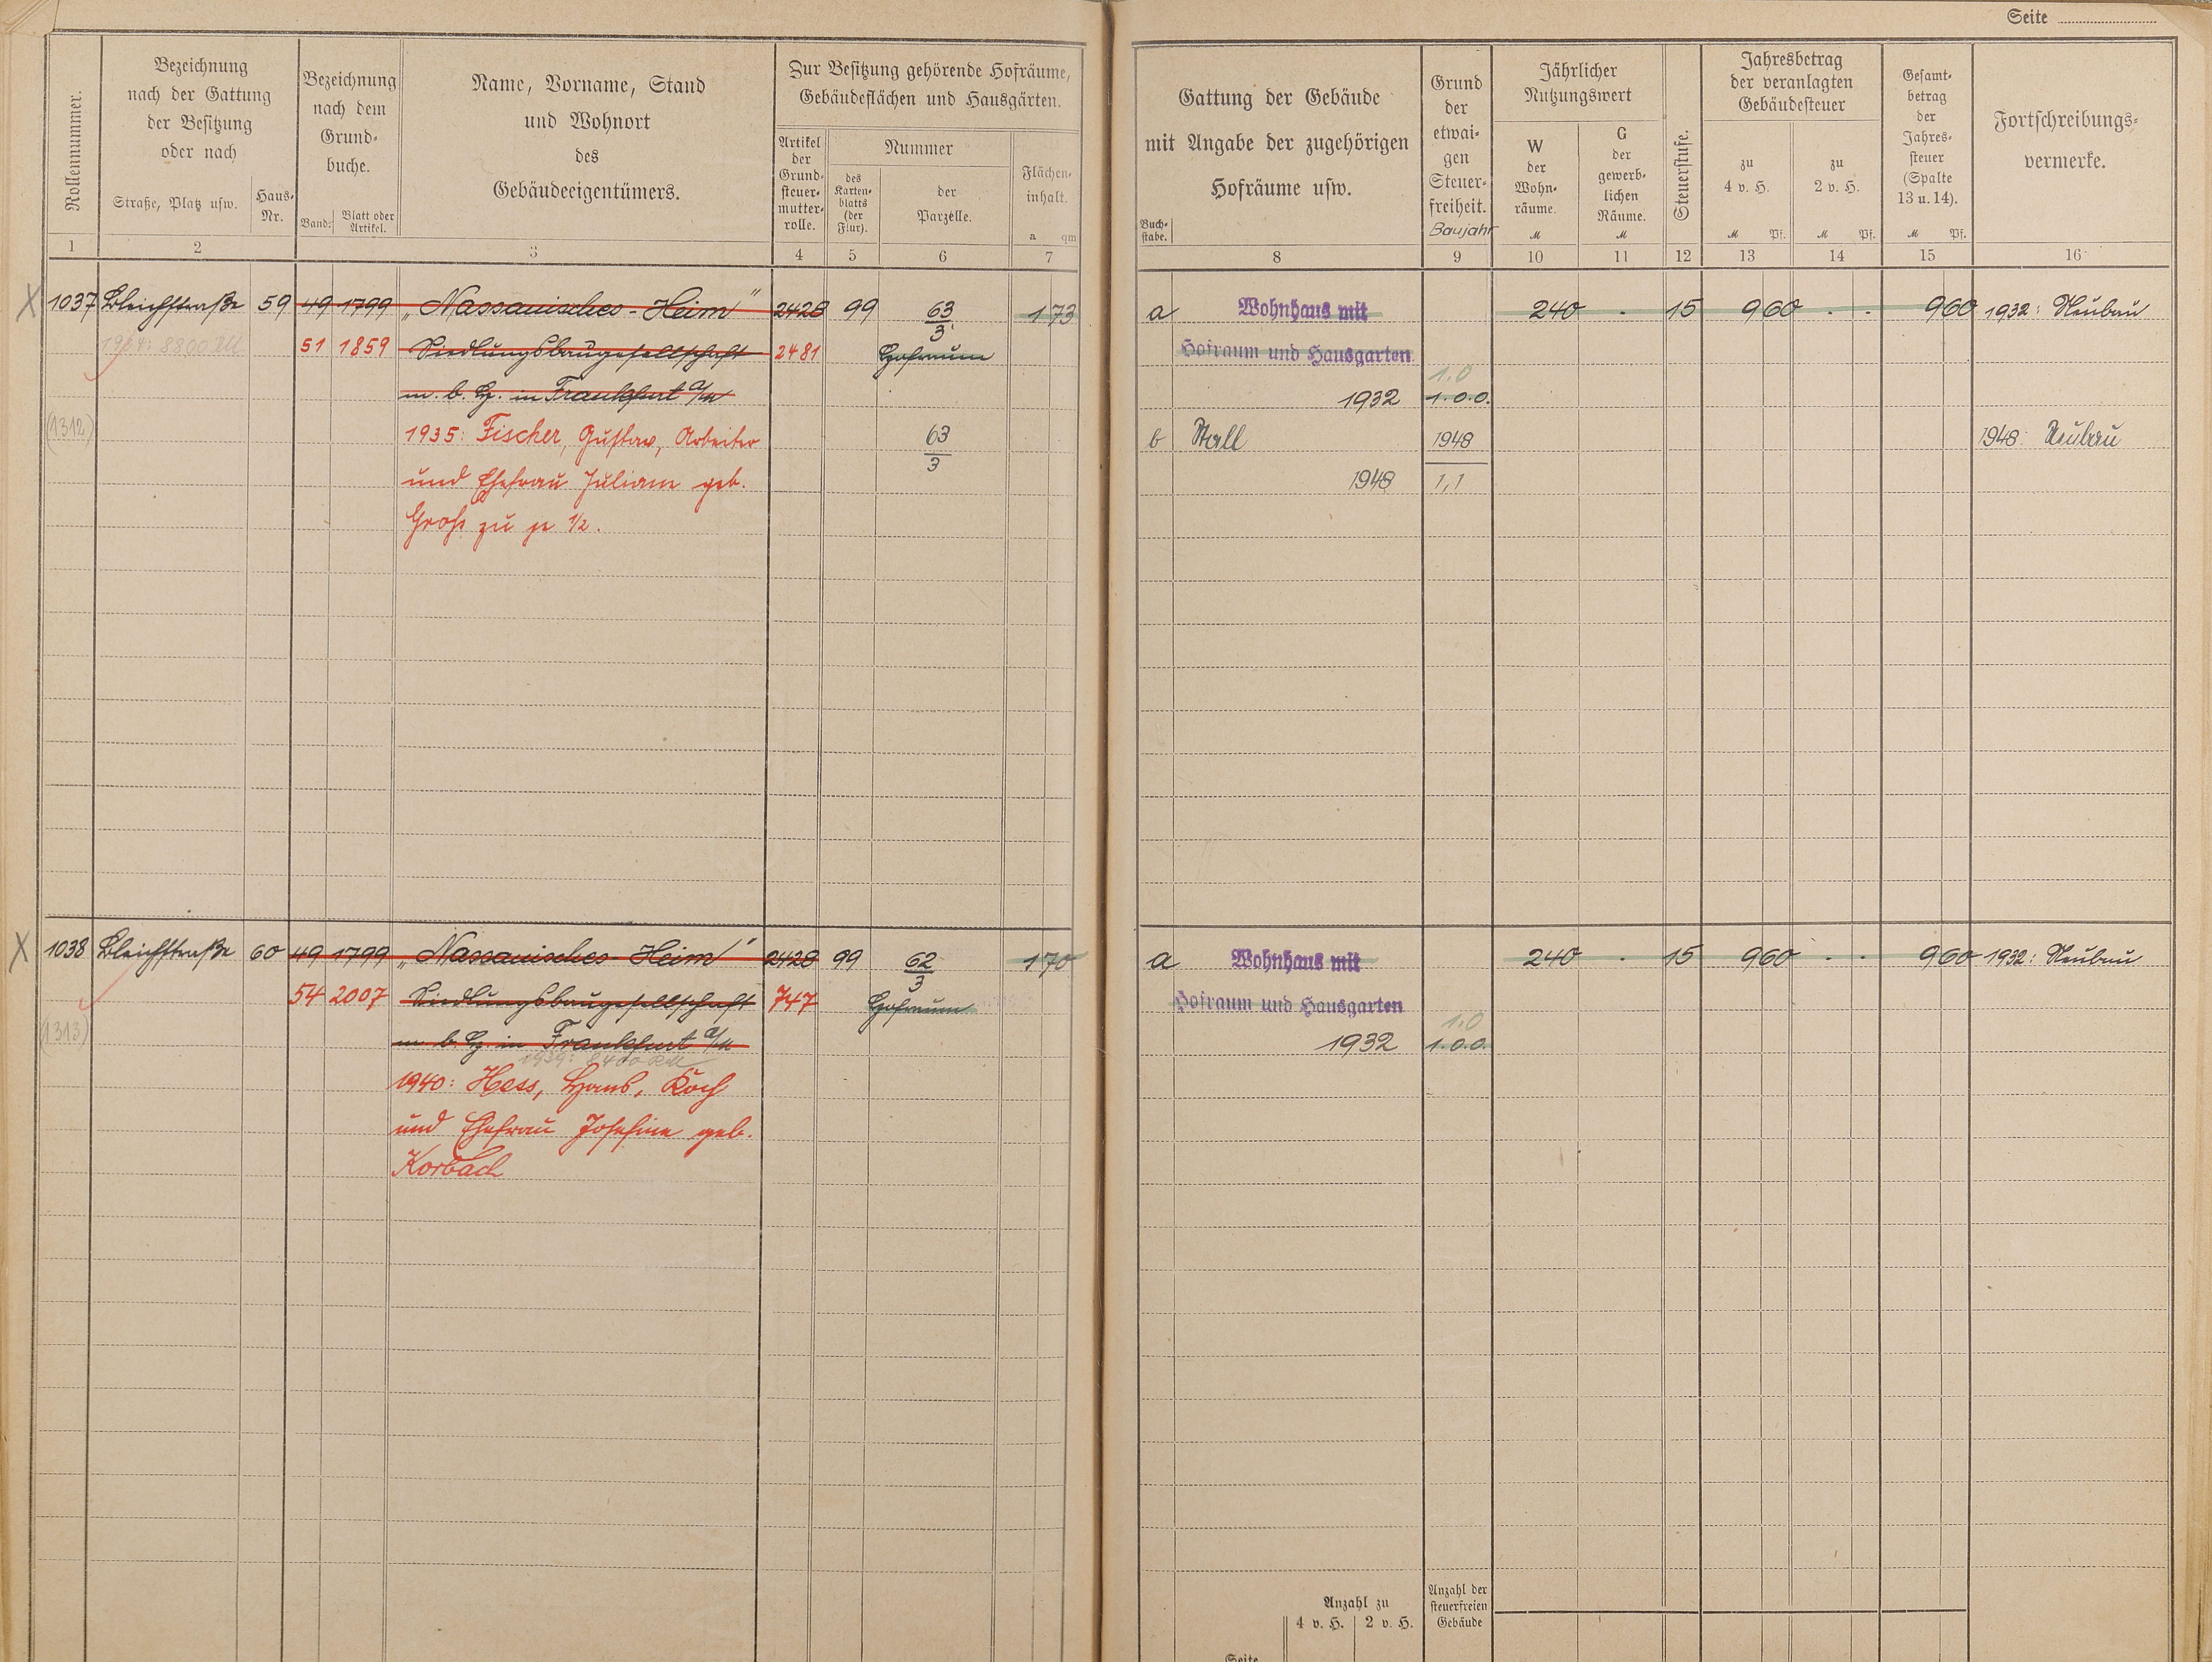 Seite
Rollennummer.
Bezeichnung
nach der Gattung
der Besitzung
oder nach
Straße, Platz usw.
Haus-
Nr.
Bezeichnung
nach dem
Grund-
buche.
Band:
Blatt oder
Artikel.
Name, Vorname, Stand
und Wohnort
des
Gebäudeeigentümers.
Zur Besitzung gehörende Hofräume,
Gebäudeflächen und Hausgärten.
Artikel
der
Grund-
steuer-
mutter-
rolle.
Nummer
des
Karten-
blatts
(der
Flur).
der
Parzelle.
Flächen-
inhalt.
a qm
1 2 3 4 5 6 7
1037 Bleichstraße 59 49 1799 „Nassauisches-Heim" 2428 99 63/3 173
51 1859 Siedlungsbaugesellschaft 2481 Hofraum
m. b. H. in Frankfurt a/M
(1312) 1935: Fischer, Gustav, Arbeiter 63/3
und Ehefrau Juliane geb.
Groß zu je 1/2.
1038 Bleichstraße 60 49 1799 „Nassauisches-Heim" 2428 99 62/3 170
54 2007 Siedlungsbaugesellschaft 747 Hofraum
(1313) m. b. H. in Frankfurt a/M
1940: Hess, Hans, Koch
und Ehefrau Josefine geb.
Korbach
Gattung der Gebäude
mit Angabe der zugehörigen
Hofräume usw.
Buch-
stabe.
Grund
der
etwai-
gen
Steuer-
freiheit.
Baujahr
Jährlicher
Nutzungswert
W
der
Wohn-
räume.
M
G
der
gewerb-
lichen
Räume.
M
Steuerstufe.
Jahresbetrag
der veranlagten
Gebäudesteuer
zu
4 v. H.
M Pf.
zu
2 v. H.
M Pf.
Gesamt-
betrag
der
Jahres-
steuer
(Spalte
13 u. 14).
M Pf.
Fortschreibungs-
vermerke.
8 9 10 11 12 13 14 15 16
a Wohnhaus mit 240 - 15 960 - - 960 1932: Neubau
Hofraum und Hausgarten
1.0
1932 1.0.0.
b Stall 1948 1948: Neubau
1948 1,1
a Wohnhaus mit 240 - 15 960 - - 960 1932: Neubau
Hofraum und Hausgarten
1.0
1932 1.0.0.
Anzahl zu
4 v. H. 2 v. H.
Anzahl der
steuerfreien
Gebäude
Seite